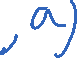 , a)